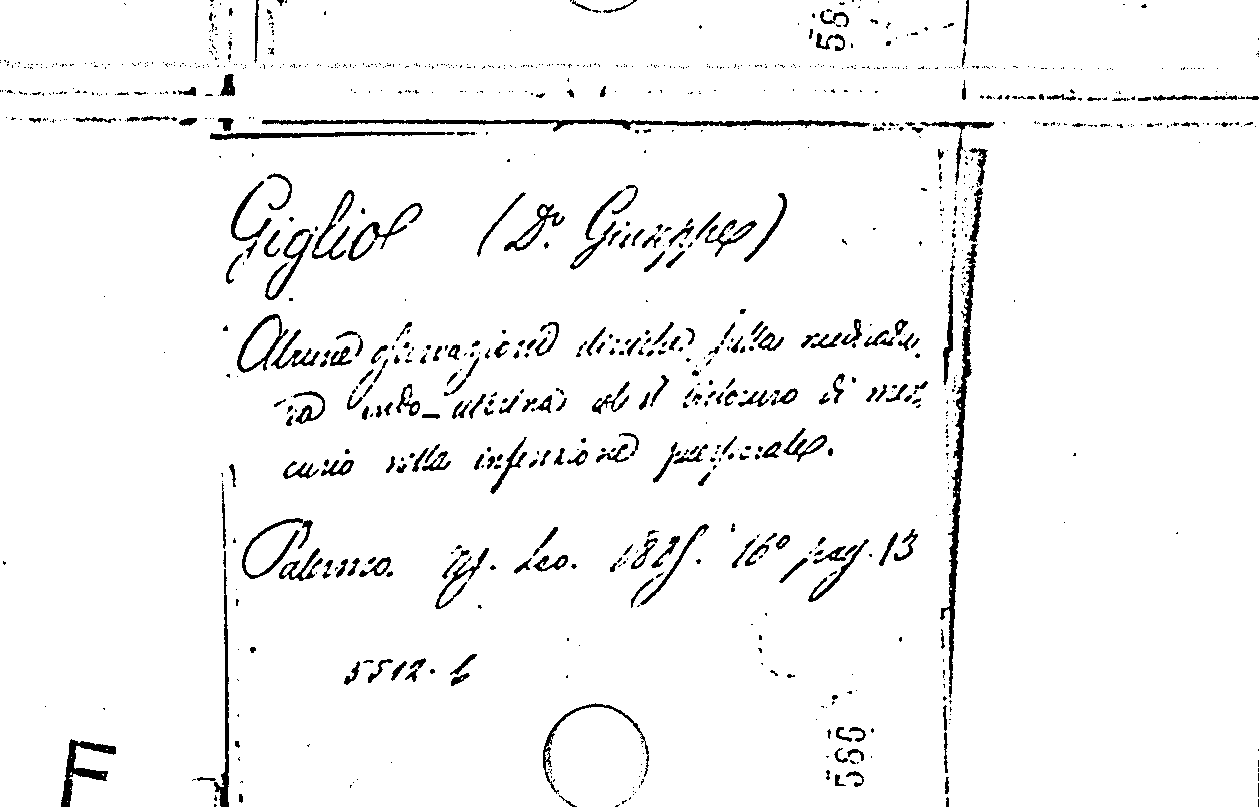 58
Giglio (Dr. Giuseppe)
Alcune osservazioni cliniche sulla medicatu
ra endo-uterina col biioduro di mer
curio nella infezione puerperale.
Palermo. Tip. Leo. 16º pag. 13
5512. b
566
F